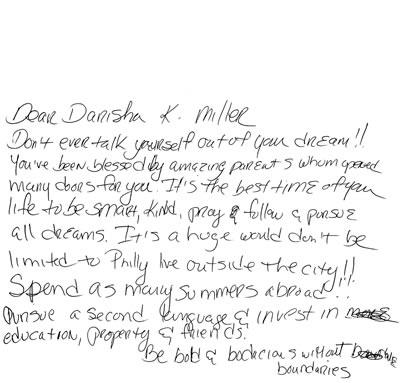 Dear Danisha K. Miller
Don't ever talk yourself out of your dream!!
You've been blessed by amazing parents whom opened
many doors for you. It's the best time of you
life to be smart, kind, pray & follow & pursue
all dreams. It's a huge would don't be
limited to Philly live outside the city!!
Spend as many summers abroad!!
Pursue a second language & invest in
education, property & friends.
Be bold & bodacious without
boundaries